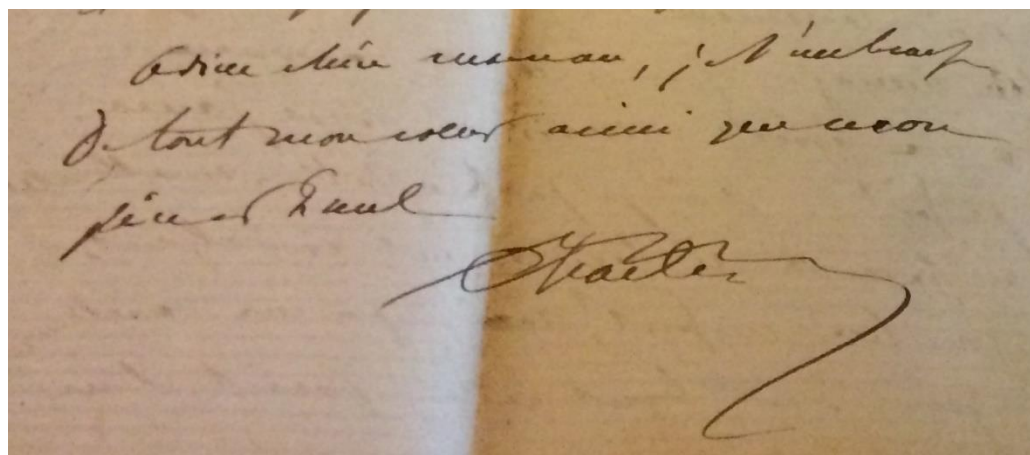 Adieu chère maman, je t'embrasse
de tout mon coeur ainsi que mon
père et Paul